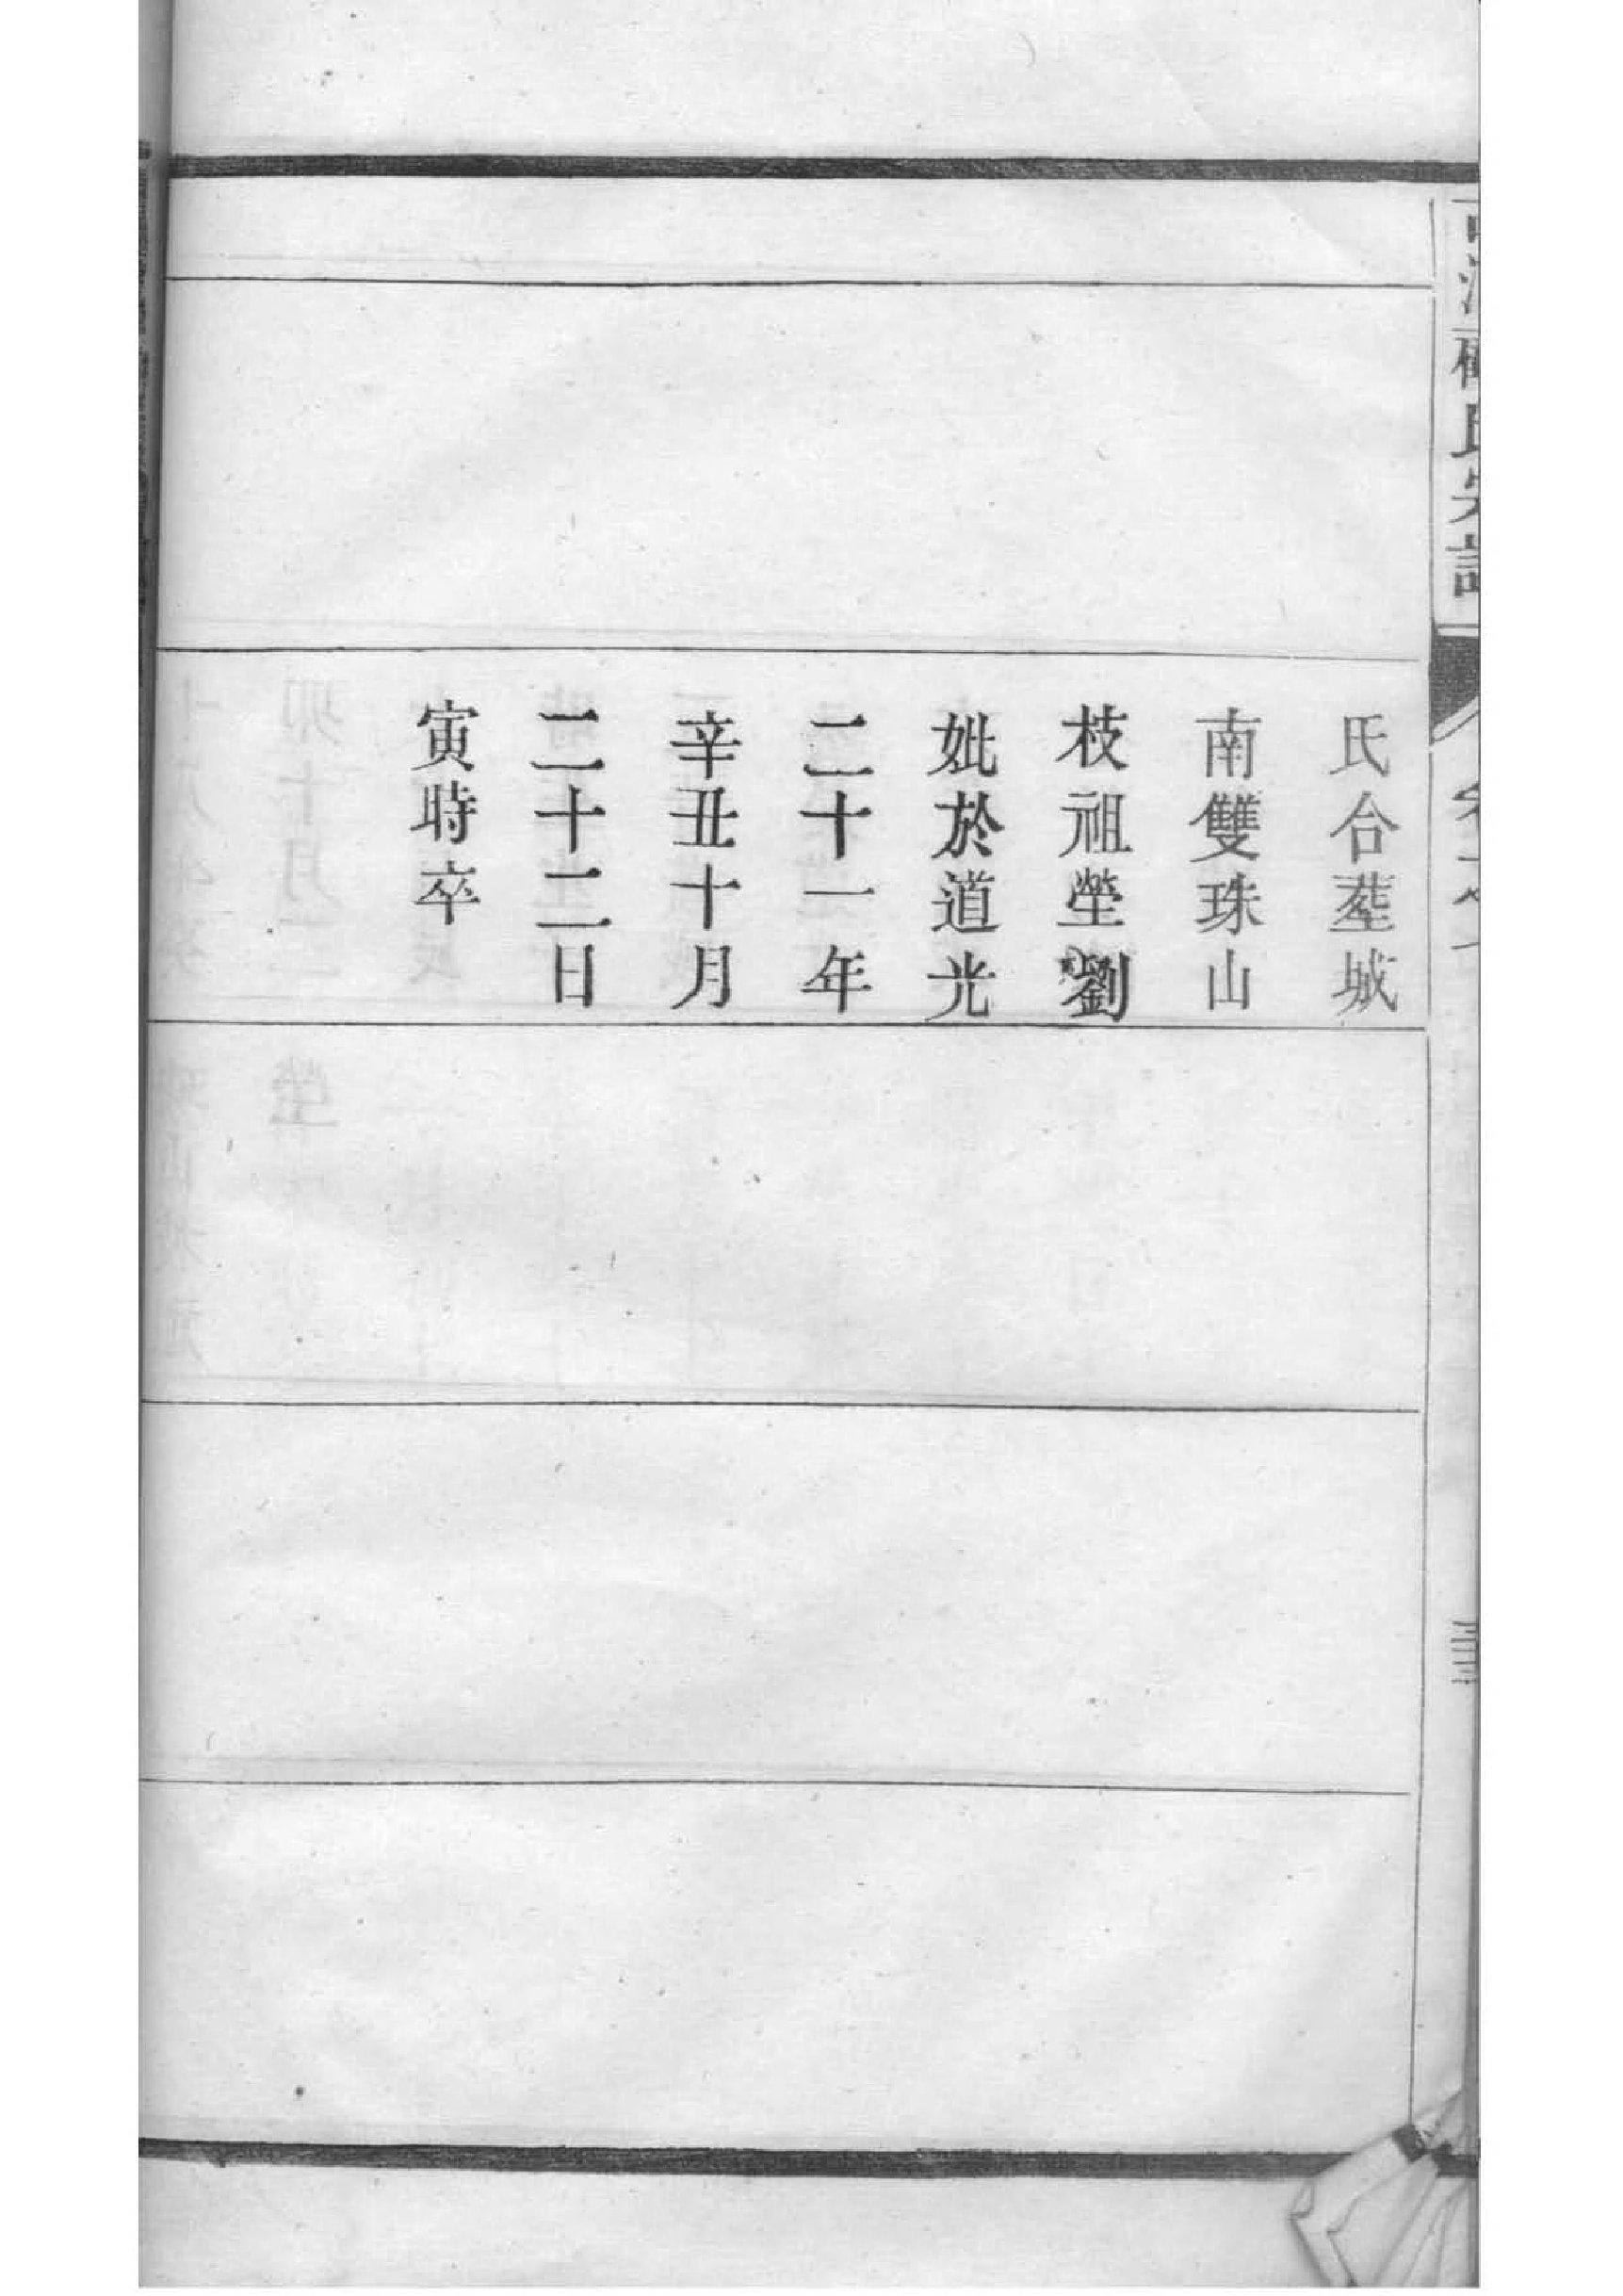 氏合塟城
南雙珠山
枝祖塋劉
妣於道光
二十一年
辛丑十月
二十二日
寅時卒